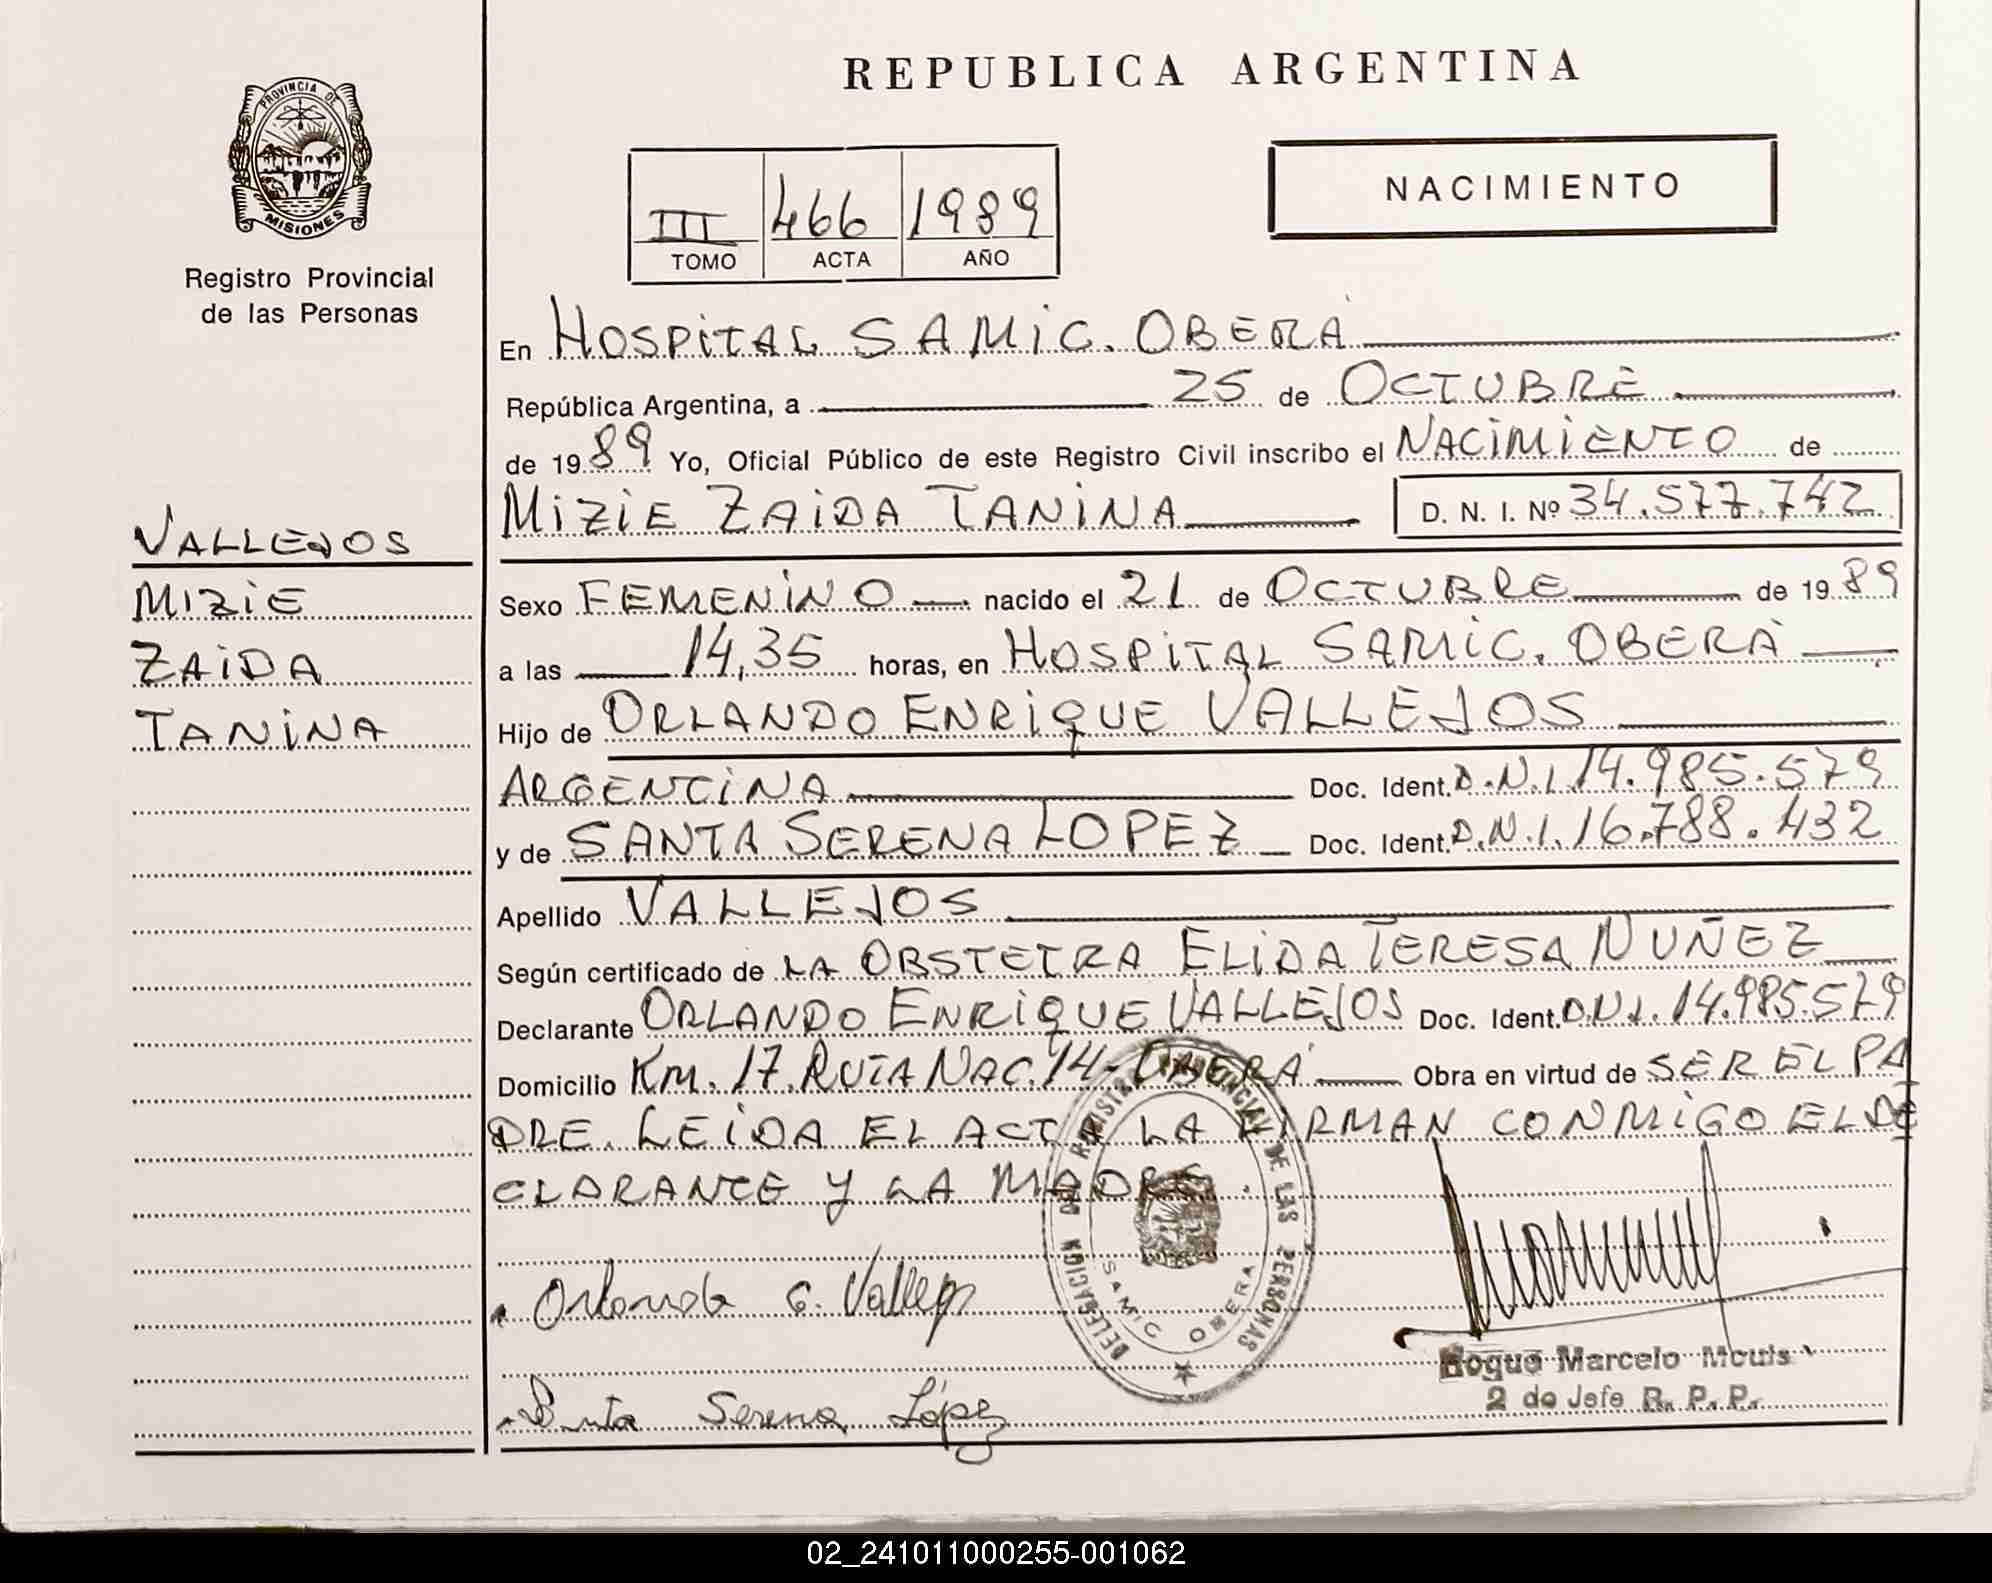 REPUBLICA ARGENTINA
PROVINCIA DE
MISIONES
Registro Provincial
de las Personas
III 466 1989
TOMO ACTA AÑO
NACIMIENTO
En HOSPITAL SAMIC. OBERÁ
República Argentina, a 25 de OCTUBRE
de 1989 Yo, Oficial Público de este Registro Civil inscribo el NACIMIENTO de
MIZIE ZAIDA TANINA D. N. I. Nº 34.577.742
VALLEJOS
MIZIE
ZAIDA
TANINA
Sexo FEMENINO nacido el 21 de OCTUBRE de 1989
a las 14,35 horas, en HOSPITAL SAMIC. OBERÁ
Hijo de ORLANDO ENRIQUE VALLEJOS
ARGENTINA Doc. Ident. D.N.I. 14.985.579
y de SANTA SERENA LOPEZ Doc. Ident. D.N.I. 16.788.432
Apellido VALLEJOS
Según certificado de LA OBSTETRA ELIDA TERESA NUÑEZ
Declarante ORLANDO ENRIQUE VALLEJOS Doc. Ident. D.N.I. 14.985.579
Domicilio KM. 17. RUTA NAC. 14-OBERÁ Obra en virtud de SER EL PA
DRE. LEIDA EL ACTA LA FIRMAN CONMIGO EL DE
CLARANTE Y LA MADRE.
Orlando E. Vallejos
Santa Serena López
DELEGACION DEL REGISTRO PROVINCIAL DE LAS PERSONAS
SAMIC OBERA
Marcelo
2 do Jefe R. P. P.
02_241011000255-001062